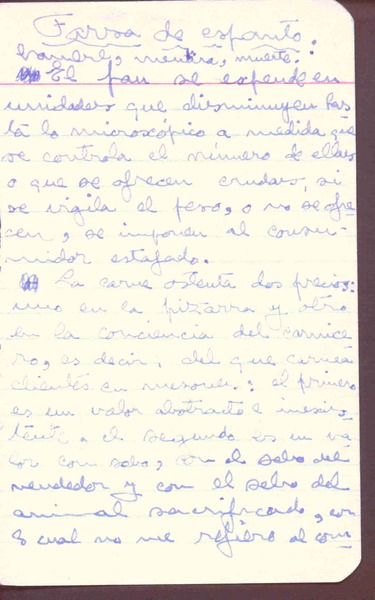 Farsa de espanto:
hambre, mentira, muerte.
El pan se expende en
unidades que disminuyen has
ta lo microscópico a medida que
se controla el número de ellas
o que se ofrecen crudas, si
se vigila el peso, o no se ofre
cen, se imponen al consu-
midor estafado.
La carne ostenta dos precios:
uno en la pizarra y otro
en la conciencia del carnice
ro, es decir, del que
clientes en mesones: el primero
es un valor abstracto e inexis-
tente, el segundo es un va
lor con sebo, con el sebo del
vendedor y con el sebo del
animal sacrificado, con
lo cual no me refiero al com